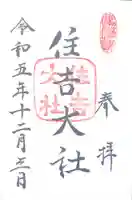 奉拝
住吉大社
令和五年十二月三日
住吉
大社